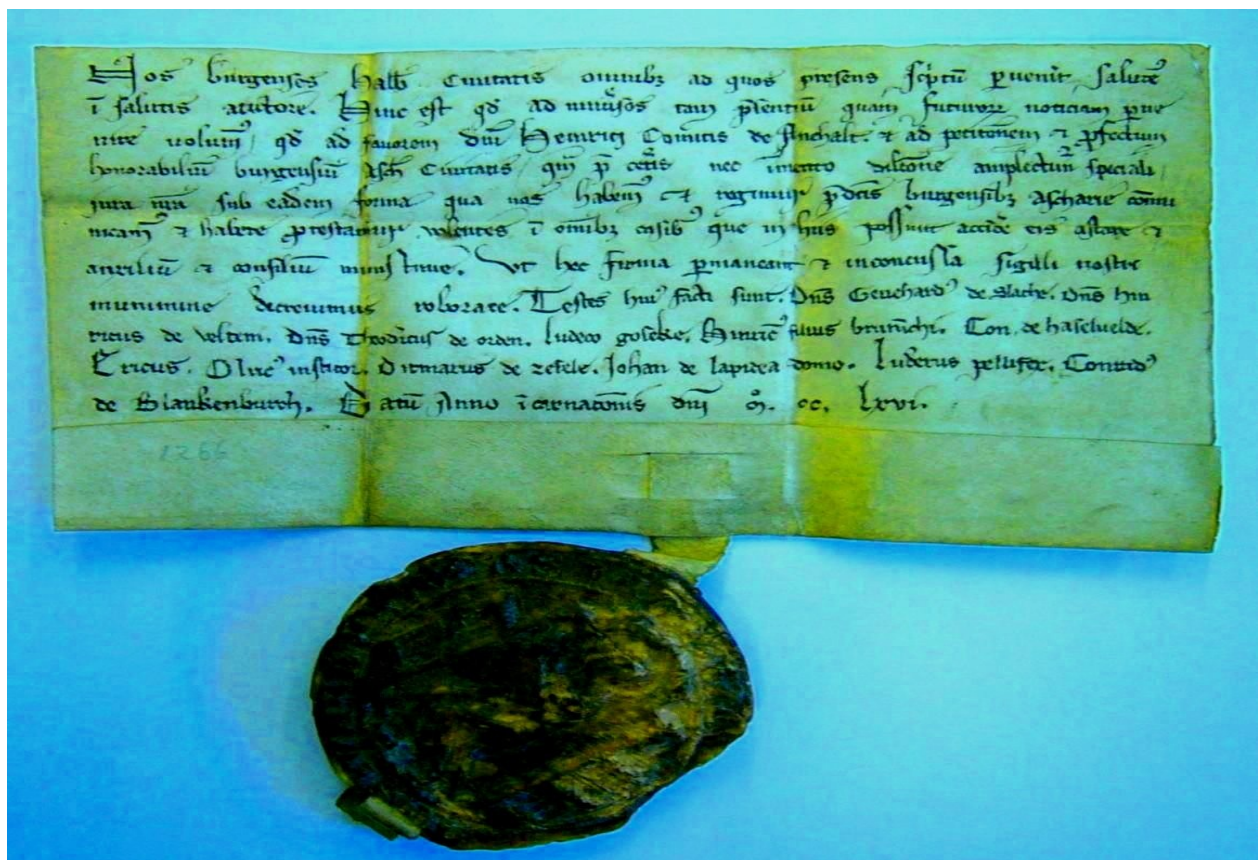 Nos burgenses Halb. Ciuitatis omnibꝫ ad quos presens sc̃ptũ ꝑuenĩt salutẽ
ĩ salutis auctore. Hinc est qđ ad tam p̃sentiũ quam futuroꝝ noticiam ꝑue
nire uolumꝰ, qđ ad fauorem dñi Heinrici Comitis de Anchalt. ⁊ ad peticionem ⁊ ꝓfectum
honorabiliũ burgensiũ Asch̃ Ciuitatis, p̃ cet̃is nec ĩmerito dilc̃one amplectimur speciali,
iura nr̃a sub eadem forma qua nos habemꝰ ⁊ p̃dc̃is burgensibꝫ Ascharie cõmu
nicamꝰ ⁊ habere ꝓtestamur, uolentes ĩ omĩbꝫ casibꝰ que ĩ hiis possunt accidẽ eis astare ⁊
auxiliũ ⁊ consiliũ Vt hec firma ꝑmaneant ⁊ inconcussa sigilli nostri
munimine decreuimus roborare. Testes huiꝰ facti sunt. Dñs Geuehardꝰ de Slache. Dñs hin
ricus de veltem. Dñs Thidricus de orden. ludeco goseke. Hinricꝰ filius brunichi. Con. de haselvelde.
Ericus. Oliuẽ institor. Ditmarus de zefele. Johan de lapidea domo. luderus pellifex. Conradꝰ
de Blankenburch. Datũ Anno ĩcarnatonis dñi M̊. cc. lxvi.
1266